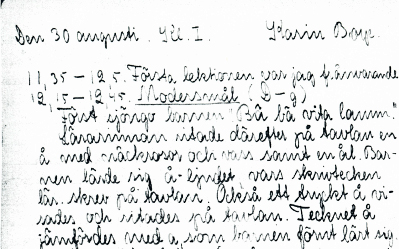 Den 30 augusti. Kl. I. Karin Boye.
11,35 – 12,5. Första lektionen var jag frånvarande
12,15 – 12,45. Modersmål (B – g)
Först sjöngo barnen "Bä bä vita lamm."
Lärarinnan ritade därefter på tavlan en
å med näckrosor och vass samt en ål. Bar-
nen lärde sig å-ljudet vars skrivtecken
lär. skrev på tavlan. Också ett tryckt å vi-
sades och ritades på tavlan. Tecknet å
jämfördes med a, som barnen förut lärt sig.